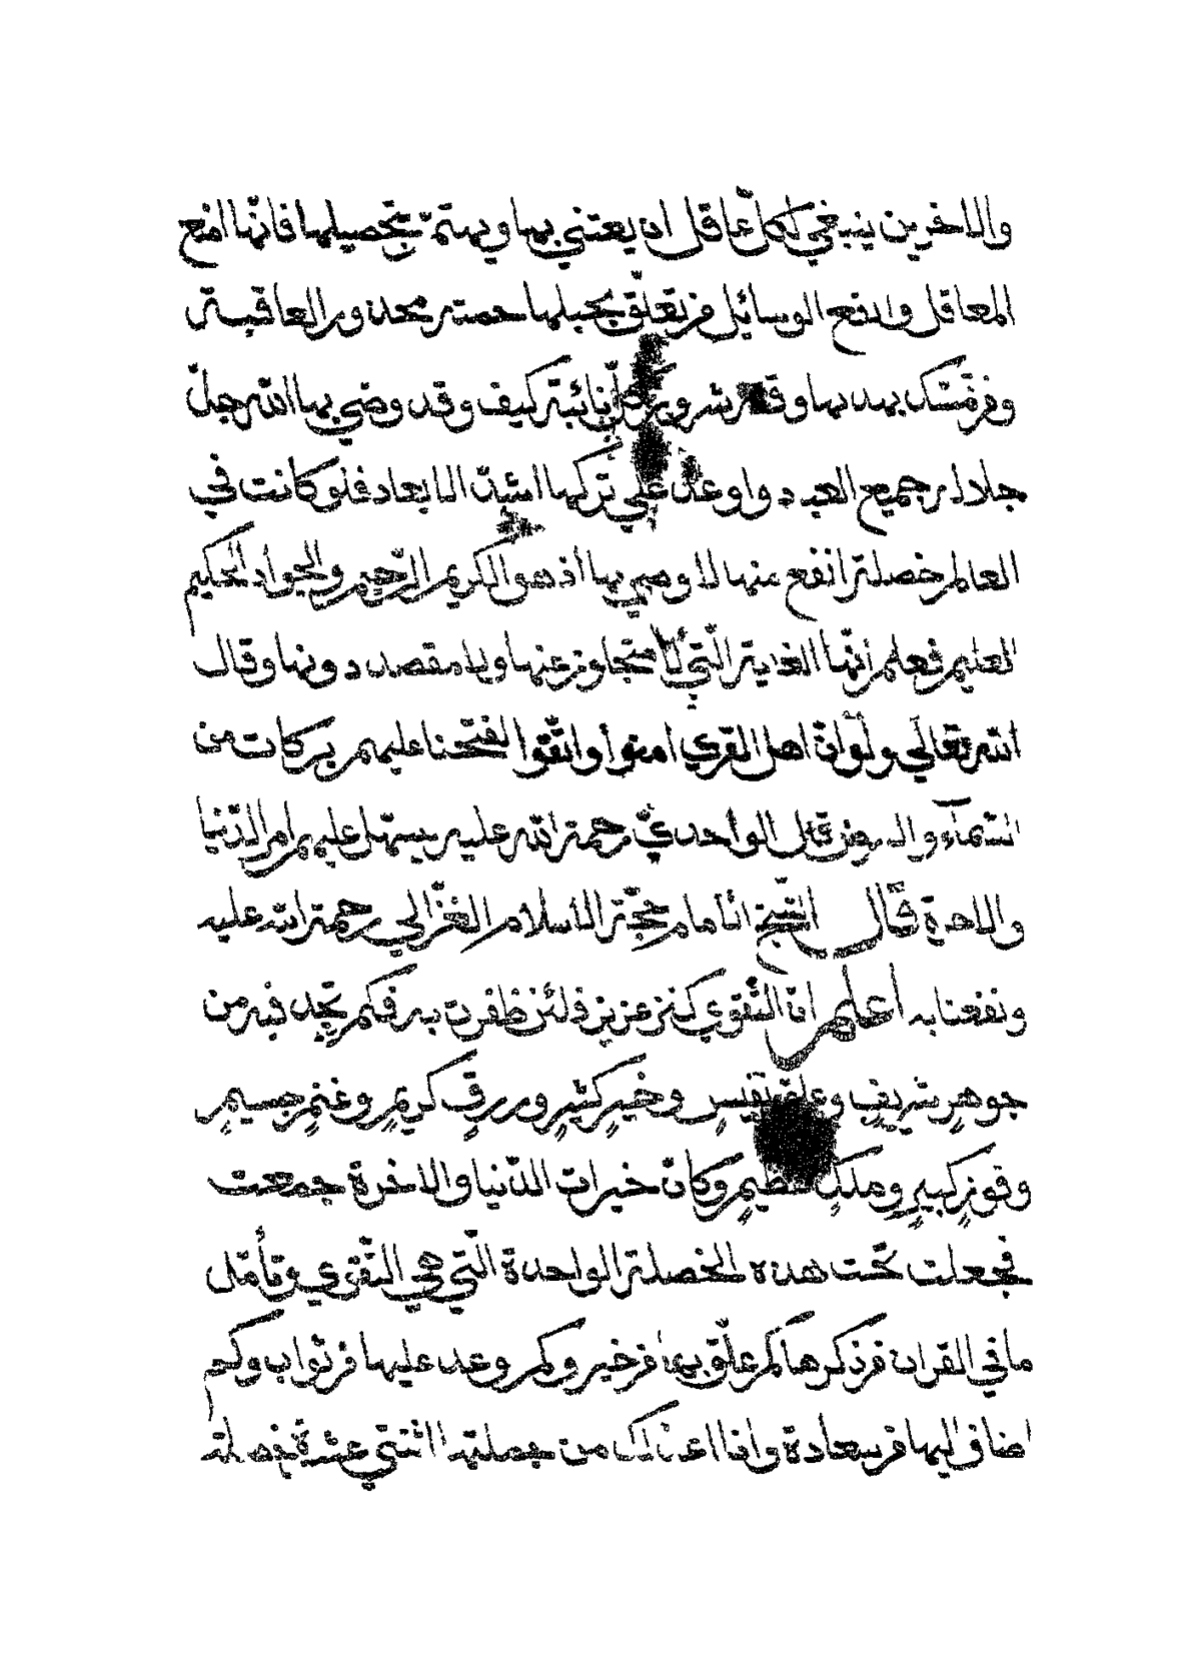 والاخرين ينبغي لكلّ عاقل ان يعتني بها ويهتمّ بتحصيلها فانّها امنع
المعاقل وادفع الوسائل فمن تعلّق بحبلها حمته محذور العاقبة
ومن تمسّك بهديها وقته شرور كلّ نائبة كيف وقد وصّي بها الله جلّ
جلاله جميع العبيد واوعد علي تركها اشدّ الابعاد فلو كانت في
العالم خصلة انفع منها لاوصي بها أذ هو الكريم الرّحيم والجواد الحكيم
العليم فعلم أنّها الغاية الّتي لا متجاوز عنها ولا مقصد دونها وقال
الله تعالي ولو انّ اهل القري امنوا واتّقوا لفتحنا عليهم بركات من
السّماء والارض قال الواحديّ رحمة الله عليه يسهل عليهم امر الدّنيا
والاخرة قال الشّيخ الامام حجّة الاسلام الغزّالي رحمة الله عليه
ونفعنا به أعلم انّ التّقوي كنز عزيز فلئن ظفرت به فكم تجد فيه من
جوهرٍ شريفٍ وعلقٍ نفيسٍ وخيرٍ كثيرٍ ورزقٍ كريمٍ وغنمٍ جسيمٍ
وفوزٍ كبيرٍ وملكٍ عظيمٍ وكانّ خيرات الدّنيا والاخرة جمعت
فجعلت تحت هذه الخصلة الواحدة الّتي هي التّقوي وتأمّل
ما في القران من ذكرها كم علّق بها من خير وكم وعد عليها من ثواب وكم
اضاف اليها من سعادة وانا اعدّ لك من جملتها اثنتي عشرة خصلة